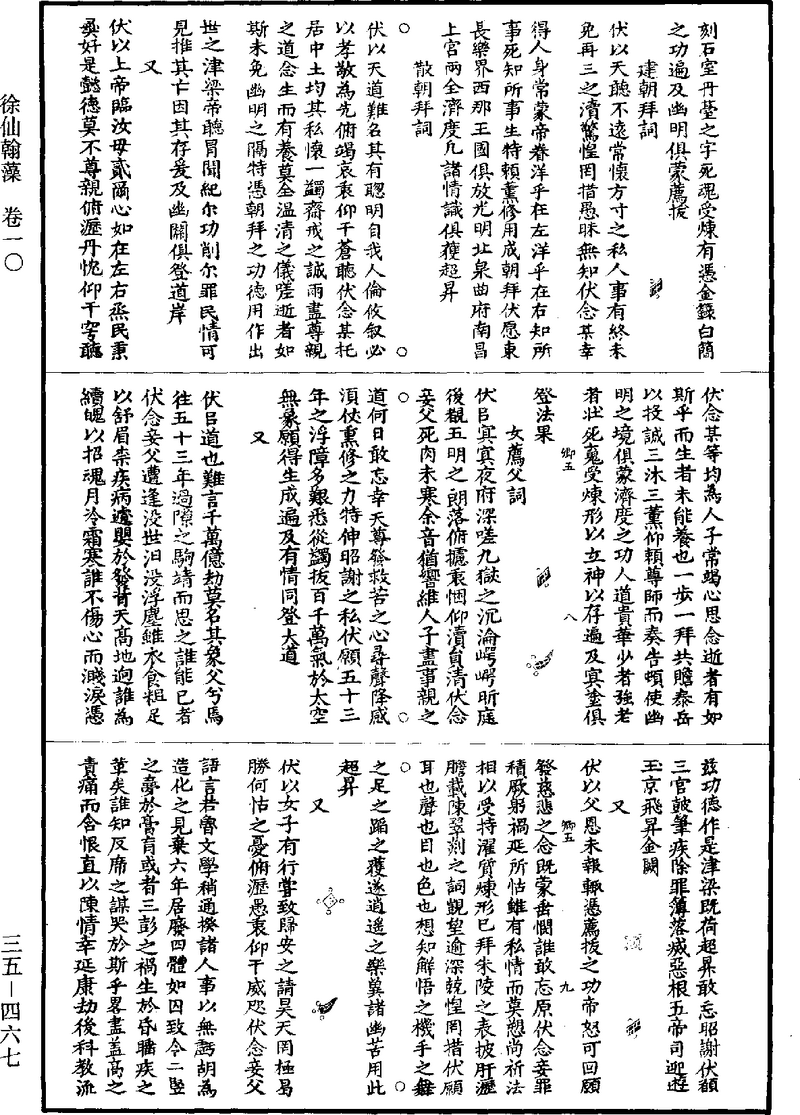 刻石室丹臺之字死魂受煉有憑金籙白簡
之功遍及幽明俱蒙薦拔
建朝拜詞
伏以天聽不遠常懷方寸之私人事有終未
免再三之瀆驚惶罔措愚昧無知伏念某幸
得人身常蒙帝眷洋乎在左洋乎在右知所
事死知所事生特賴熏修用成朝拜伏愿東
長樂界西那王國俱放光明北泉曲府南昌
上宮兩全濟度凡諸情識俱獲超昇
散朝拜詞
伏以天道難名其有聰明自我人倫攸叙必
以孝敬為先俯竭哀衷仰干蒼聽伏念某托
居中土均其私懷一蠲齋戒之誠兩盡尊親
之道念生而有養莫全温凊之儀嗟逝者如
斯未免幽明之隔特憑朝拜之功德用作出
世之津梁帝聽冐聞紀尔功削尔罪民情可
見推其亡因其存爰及幽關俱登道岸
又
伏以上帝臨汝毋貳爾心如在左右烝民秉
彝好是懿德莫不尊親俯瀝丹忱仰干穹聽
伏念某等均為人子常竭心思念逝者有如
斯乎而生者未能養也一步一拜共瞻泰岳
以投誠三沐三薰仰賴尊師而奏告頓使幽
明之境俱蒙濟度之功人道貴華少者強老
者壯死䰟受煉形以立神以存遍及冥塗俱
登法果
女薦父詞
伏以冥冥夜府深嗟九獄之沉淪㟧㟧昕庭
後觀五明之朗落俯攄衷悃仰瀆負清伏念
妾父死肉未寒余音猶響維人子盡事親之
道何日敢忘幸天尊發救苦之心尋聲降感
湏俠熏修之力特伸昭謝之私伏願五十三
年之浮障多艱悉從蠲拔百千萬氣於太空
無象願得生成遍及有情同登大道
又
伏以道也難言千萬億劫莫名其象父兮焉
往五十三年過隙之駒靖而思之誰能已者
伏念妾父遭逢没世汩没浮塵雖衣食粗足
以舒眉柰疾病遽嬰於發背天髙地逈誰為
續魄以招魂月冷霜寒誰不傷心而濺淚憑
兹功德作是津梁既荷超昇敢忘昭謝伏願
三官鼓筆疾除罪簿落滅惡根五帝司迎遊
玉京飛昇金闕
又
伏以父恩未報輙憑薦拔之功帝怒可回願
發慈悲之念既蒙垂憫誰敢忘原伏念妾罪
積厥躬禍延所怙雖有私情而莫愬尚祈法
相以受持濯質煉形已拜朱陵之表披肝瀝
膽載陳翠剡之詞觀望逾深兢惶罔措伏願
耳也聲也目也色也想知觧悟之機手之舞
之足之蹈之獲遂逍遥之樂冀諸幽苦用此
超昇
又
伏以女子有行甞致歸安之請昊天罔極曷
勝何怙之憂俯瀝愚衷仰干威咫伏念妾父
語言若魯文學稍通揆諸人事以無愆胡為
造化之見棄六年居廢四體如囚致令二竪
之憂於膏肓或者三彭之禍生於昏瞶疾之
革矣誰知反席之謀哭於斯乎畧盡盖高之
責痛而含恨直以陳情幸延康劫後科教流
徐仙翰藻 卷一〇
三五—四六七